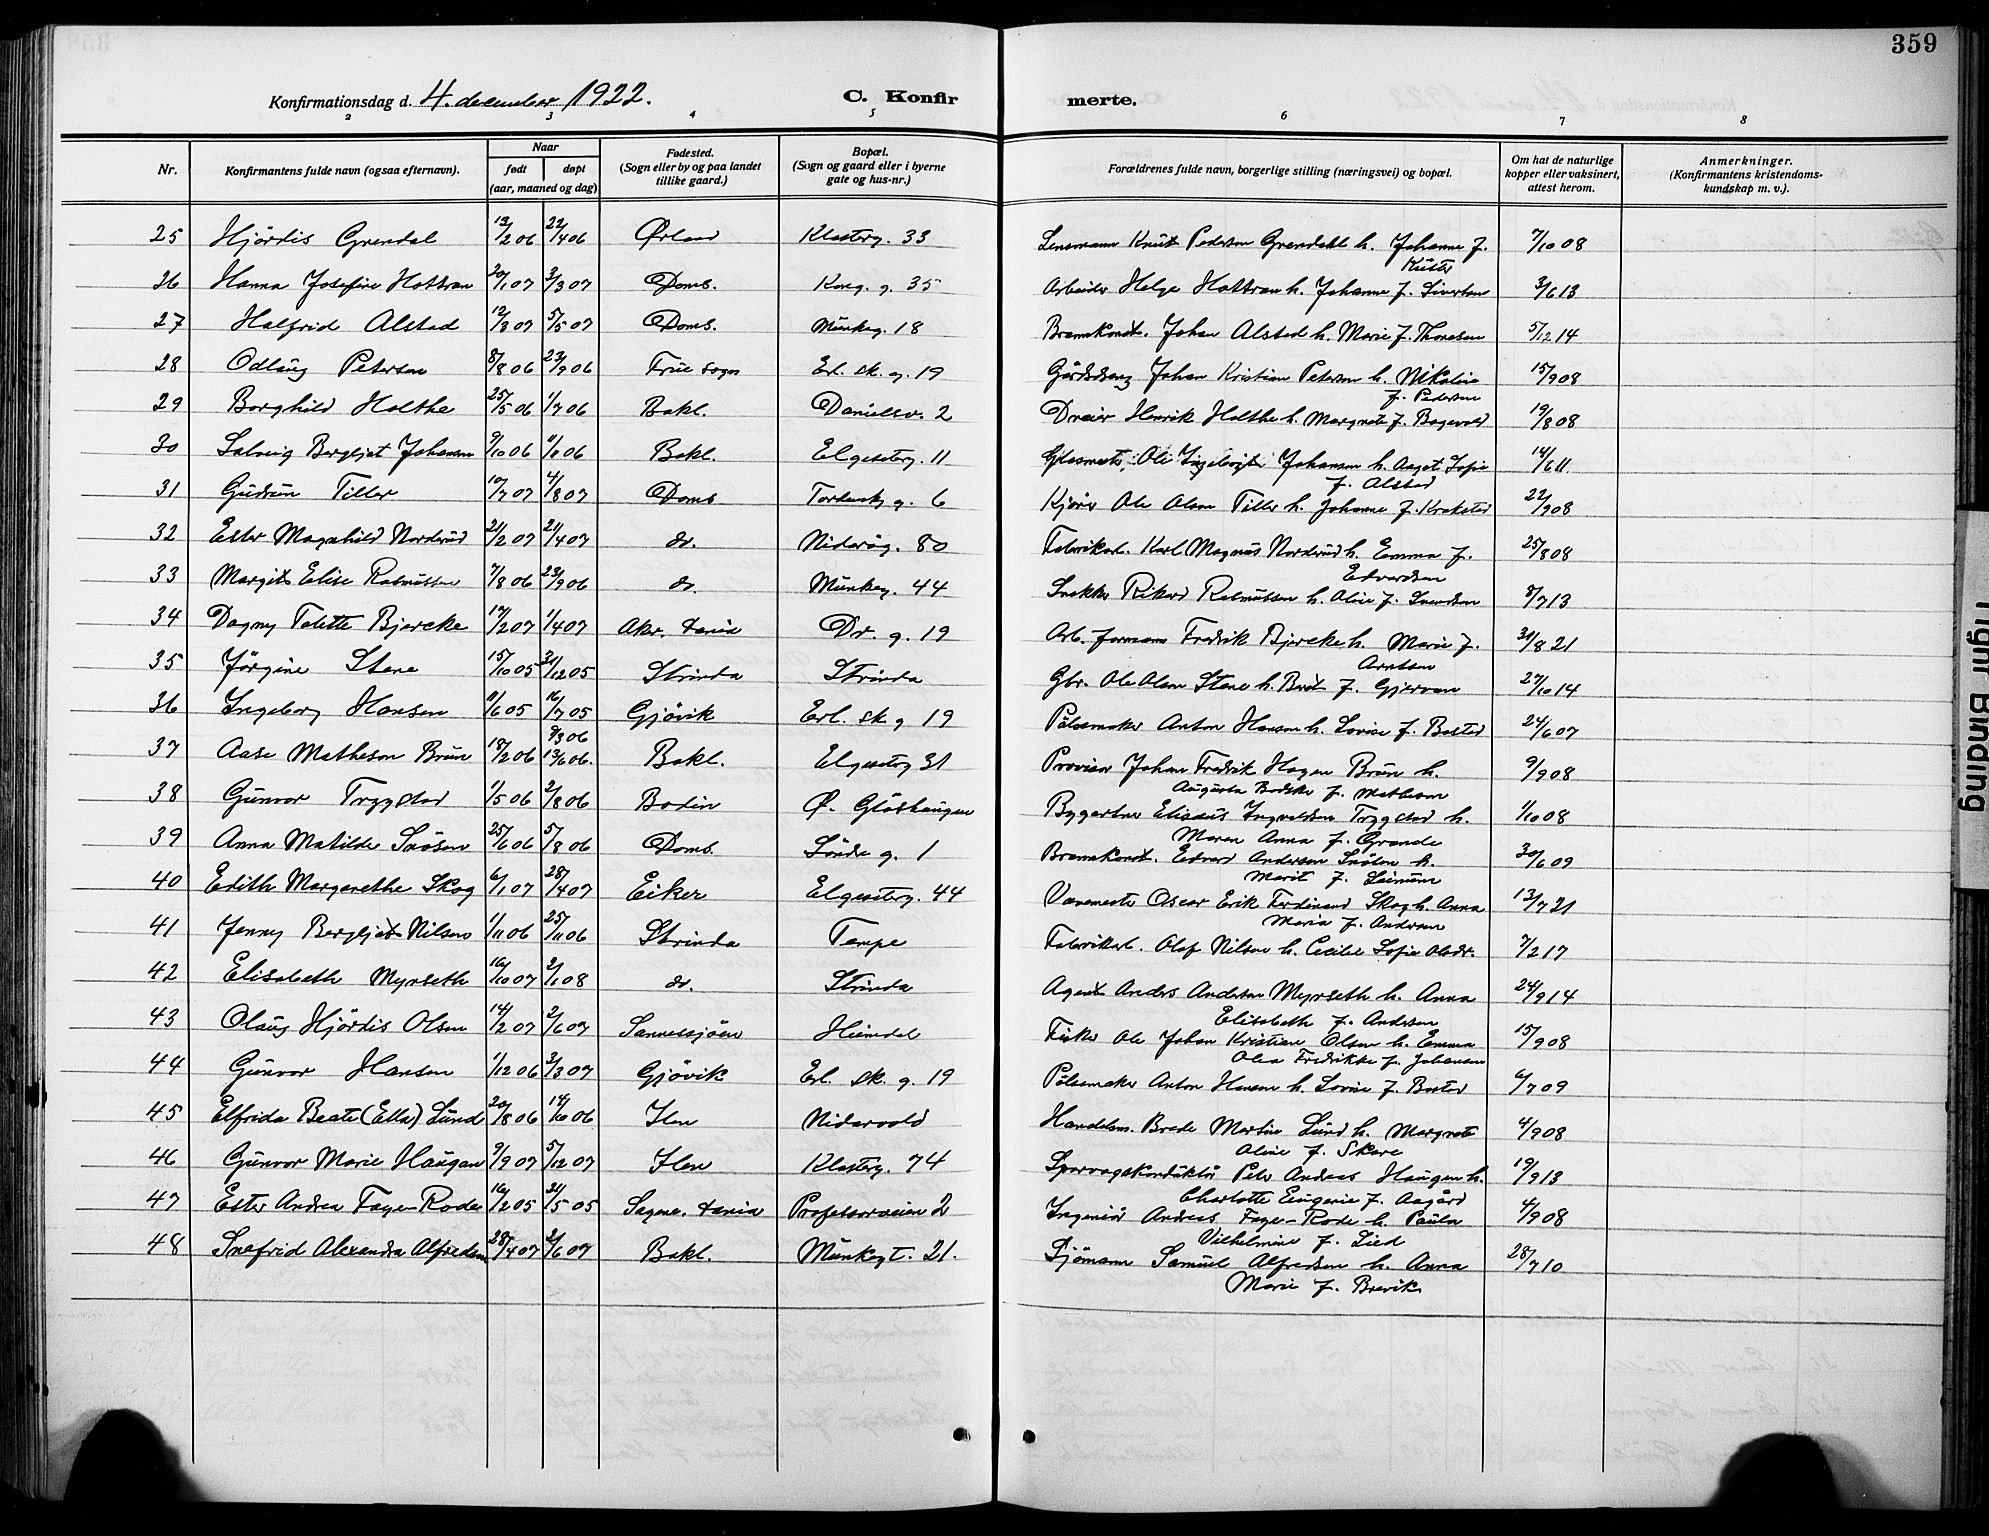 359
Konfirmationsdag d. 4. december 1922.
C. Konfir
merte.
2 3 4 5 6 7 8
Nr.
Konfirmantens fulde navn (ogsaa efternavn).
Naar
født
døpt
(aar, maaned og dag)
Fødested.
(Sogn eller by og paa landet
tillike gaard.)
Bopæl.
(Sogn og gaard eller i byerne
gate og hus-nr.)
Forældrenes fulde navn, borgerlige stilling (næringsvei) og bopæl.
Om hat de naturlige
kopper eller vaksinert,
attest herom.
Anmerkninger.
(Konfirmantens kristendoms-
kundskap m. v.).
25 Hjördis Grendal 13/2 06 22/4 06 Ørland Klosterg. 33 Lensmann Knut Pedersen Grendahl h. Johanne f. 7/10 08
Küster
26 Hanna Josefine Hottran 20/1 07 3/3 07 Doms. Kong. g. 35 Arbeider Helge Hottran h. Johanne f. Sivertsen 3/6 13
27 Halfrid Alstad 12/3 07 5/5 07 Doms. Munkeg. 18 Bramkonst. Johan Alstad h. Marie f. Thoresen 5/12 14
28 Odlaug Petersen 8/8 06 23/9 06 Frue sogn Erl. sk. g. 19 Johan Kristian Petersen h. Nikoline 15/9 08
f. Pedersen
29 Borghild Holthe 25/5 06 1/7 06 Bakl. Danielsv. 2 Dreier Henrik Holthe h. Margrete f. 19/8 08
30 Solveig Bergljot Johansen 9/10 06 Bakl. Elgeseterg. 11 Glasmester Ole Johansen h. Aagot Sofie 14/6 11
f. Alstad
31 Gudrun Tiller 10/7 07 4/8 07 Doms Tordensk. g. 6 Kjörer Ole Olsen Tiller h. Johanne f. Krokstad 22/9 08
32 Ester Magnhild Norderud 21/2 07 21/4 07 do. Nidarög. 80 Fabrikarb. Karl Magnus Norderud h. Emma f. 25/8 08
Edvardsen
33 Margit Elise Rasmussen 7/8 06 23/9 06 do. Munkeg. 44 Snekker Rikard Rasmussen h. Aline f. Svendsen 8/7 13
34 Dagny Tolette Bjercke 17/2 07 1/4 07 Aker, Xania Dr. g. 19 Arb. formann Fredrik Bjercke h. Marie f. 31/8 21
Arntsen
35 Jörgine Stene 15/10 05 31/12 05 Strinda Strinda Gbr. Ole Olsen Stene h. Berit f. Gjervan 27/10 14
36 Ingeborg Hansen 11/6 05 16/7 05 Gjövik Erl. sk. g 19 Pölsemaker Anton Hansen h. Lovise f. Bostad 24/6 07
9/3 06
37 Aase Matheson Brun 18/2 06 13/6 06. Bakl. Elgeseterg 31 Provisor Johan Fredrik Hagen Brun h. 9/9 08
Augusta Bodske f. Matheson
38 Gunvor Trygstad 1/5 06 2/8 06 Bodin Ø. Glöshaugen Bygartner Eliseus Ingvaldsen Trygstad h. 1/10 08
Maren Anna f. Grande
39 Anna Matilde Snösen 25/6 06 5/8 06 Doms. Söndre g. 1 Bramkonst. Edvard Andersen Snösen h. 30/6 09
Marit f.
40 Edith Margarethe Skog 6/1 07 28/4 07 Eiker Elgeseterg. 44 Vævemester Oscar Erik Ferdinand Skog h. Anna 13/7 21
Maria f. Andersen
41 Jenny Bergljot Nilsen 1/11 06 25/11 06 Strinda Tempe Fabrikarb. Olaf Nilsen h. Cecilie Sofie Olsdr. 7/2 17
42 Elisabeth Myrseth 16/10 07 2/1 08 do. Strinda Agent Anders Andersen Myrseth h. Anna 24/9 14
Elisabeth f. Andersen
43 Olaug Hjördis Olsen 14/2 07 2/6 07 Sannessjöen Heimdal Fisker Ole Johan Kristian Olsen h. Emma 15/9 08
Olea Fredrikke f. Johansen
44 Gunvor Hansen 1/12 06 3/3 07 Gjövik Erl. sk. g. 19 Pölsemaker Anton Hansen h. Lovise f. Bostad 6/7 09
45 Elfrida Beate (Ella) Lund 20/8 06 14/10 06 Ilen Nidarvold Handelsm. Brede Martin Lund h. Margrete 4/9 08
Aline f. Skare
46 Gunvor Marie Haugan 9/9 07 5/12 07 Ilen Klosterg. 74 Sporvogskonduktör Peter Andreas Haugen h. 19/9 13
Charlotte Eugenie f. Aagård
47 Ester Andrea Faye-Rode 16/2 05 21/5 05 Sagene, Xania Professorveien 2 Ingeniör Andreas Faye-Rode h. Paula 4/9 08
Vilhelmine f. Lied
48 Snefrid Alexandra Alfredsen 28/4 07 2/6 07 Bakl. Munkegt. 21. Sjömann Samuel Alfredsen h. Anna 28/7 10
Marie f. Brevik
Tight Binding